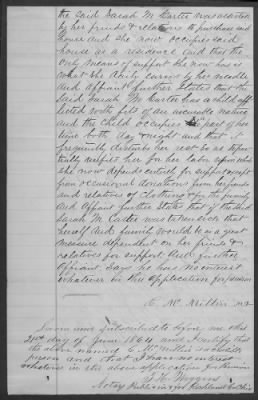 the said Sarah M. Carter was assisted
by her friends & relations to purchase said
House and she now occupies said
house as a residence and that the
only means of support she now has is
what she daily earns by her needle
and affiant further states that the
said Sarah M. Carter has a child aff
licted with fits of an incurable nature
and the child occupies part of her
time both day & night and that it
frequently disturbs her rest so as
her for her labor upon which
she now depends entirely for support except
from occasional donations from her friends
and relatives of for the family
and Affiant further states that if the said
Sarah M. Carter was taken sick that
herself and family would be in a great
measure dependent on her friends &
relatives for support and further
Affiant says he has no interest
whatever in the application for pension
C. McMillin M.D.
Sworn and subscribed to before me this
21st day of June 1864 and I certify that
the above named C. McMillin is a
person and that I have no interest
whatever in the above application for Pension
Notary Public in & for